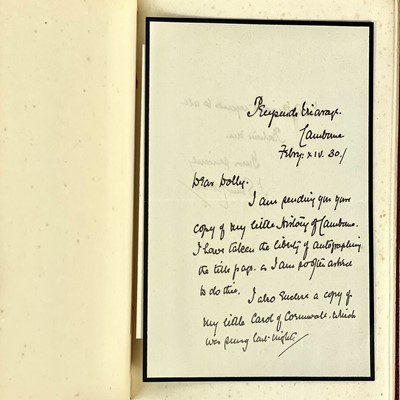 Penponds Vicarage.
Camborne
Febry. XIV. 30./
Dear Dolly.
I am sending you your
copy of my little History of Camborne.
I have taken the liberty of autographing
the title page. as I am so often asked
to do this.
I also enclose a copy of
my little Carol of Cornwall. which
was sung last night./